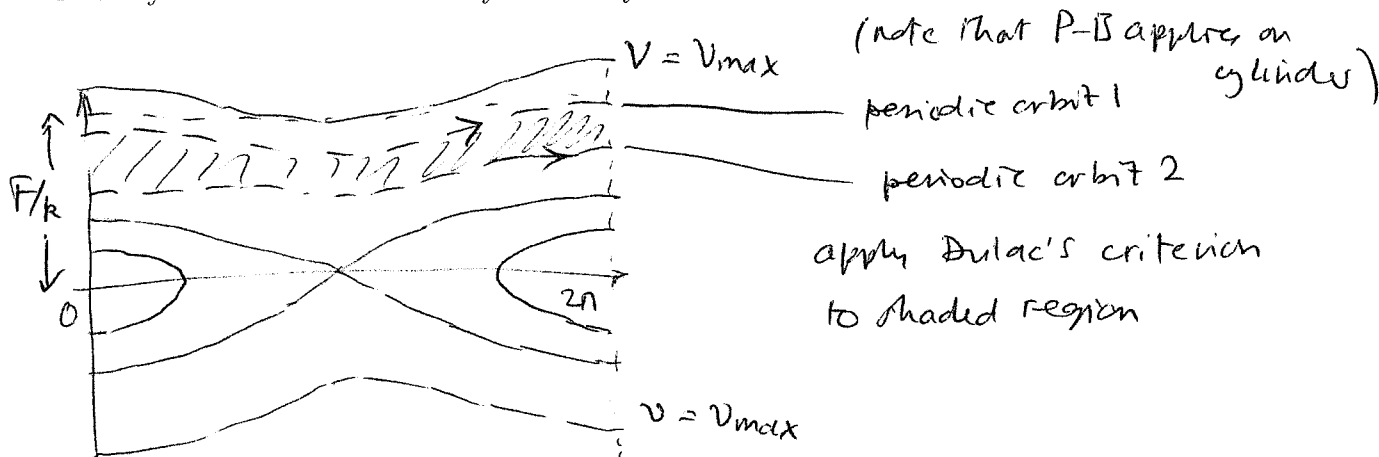 (note that P-B applies on
cylinder)
V = Vmax
periodic orbit 1
periodic orbit 2
F/k
apply Dulac's criterion
to shaded region
0
2π
v = vmax